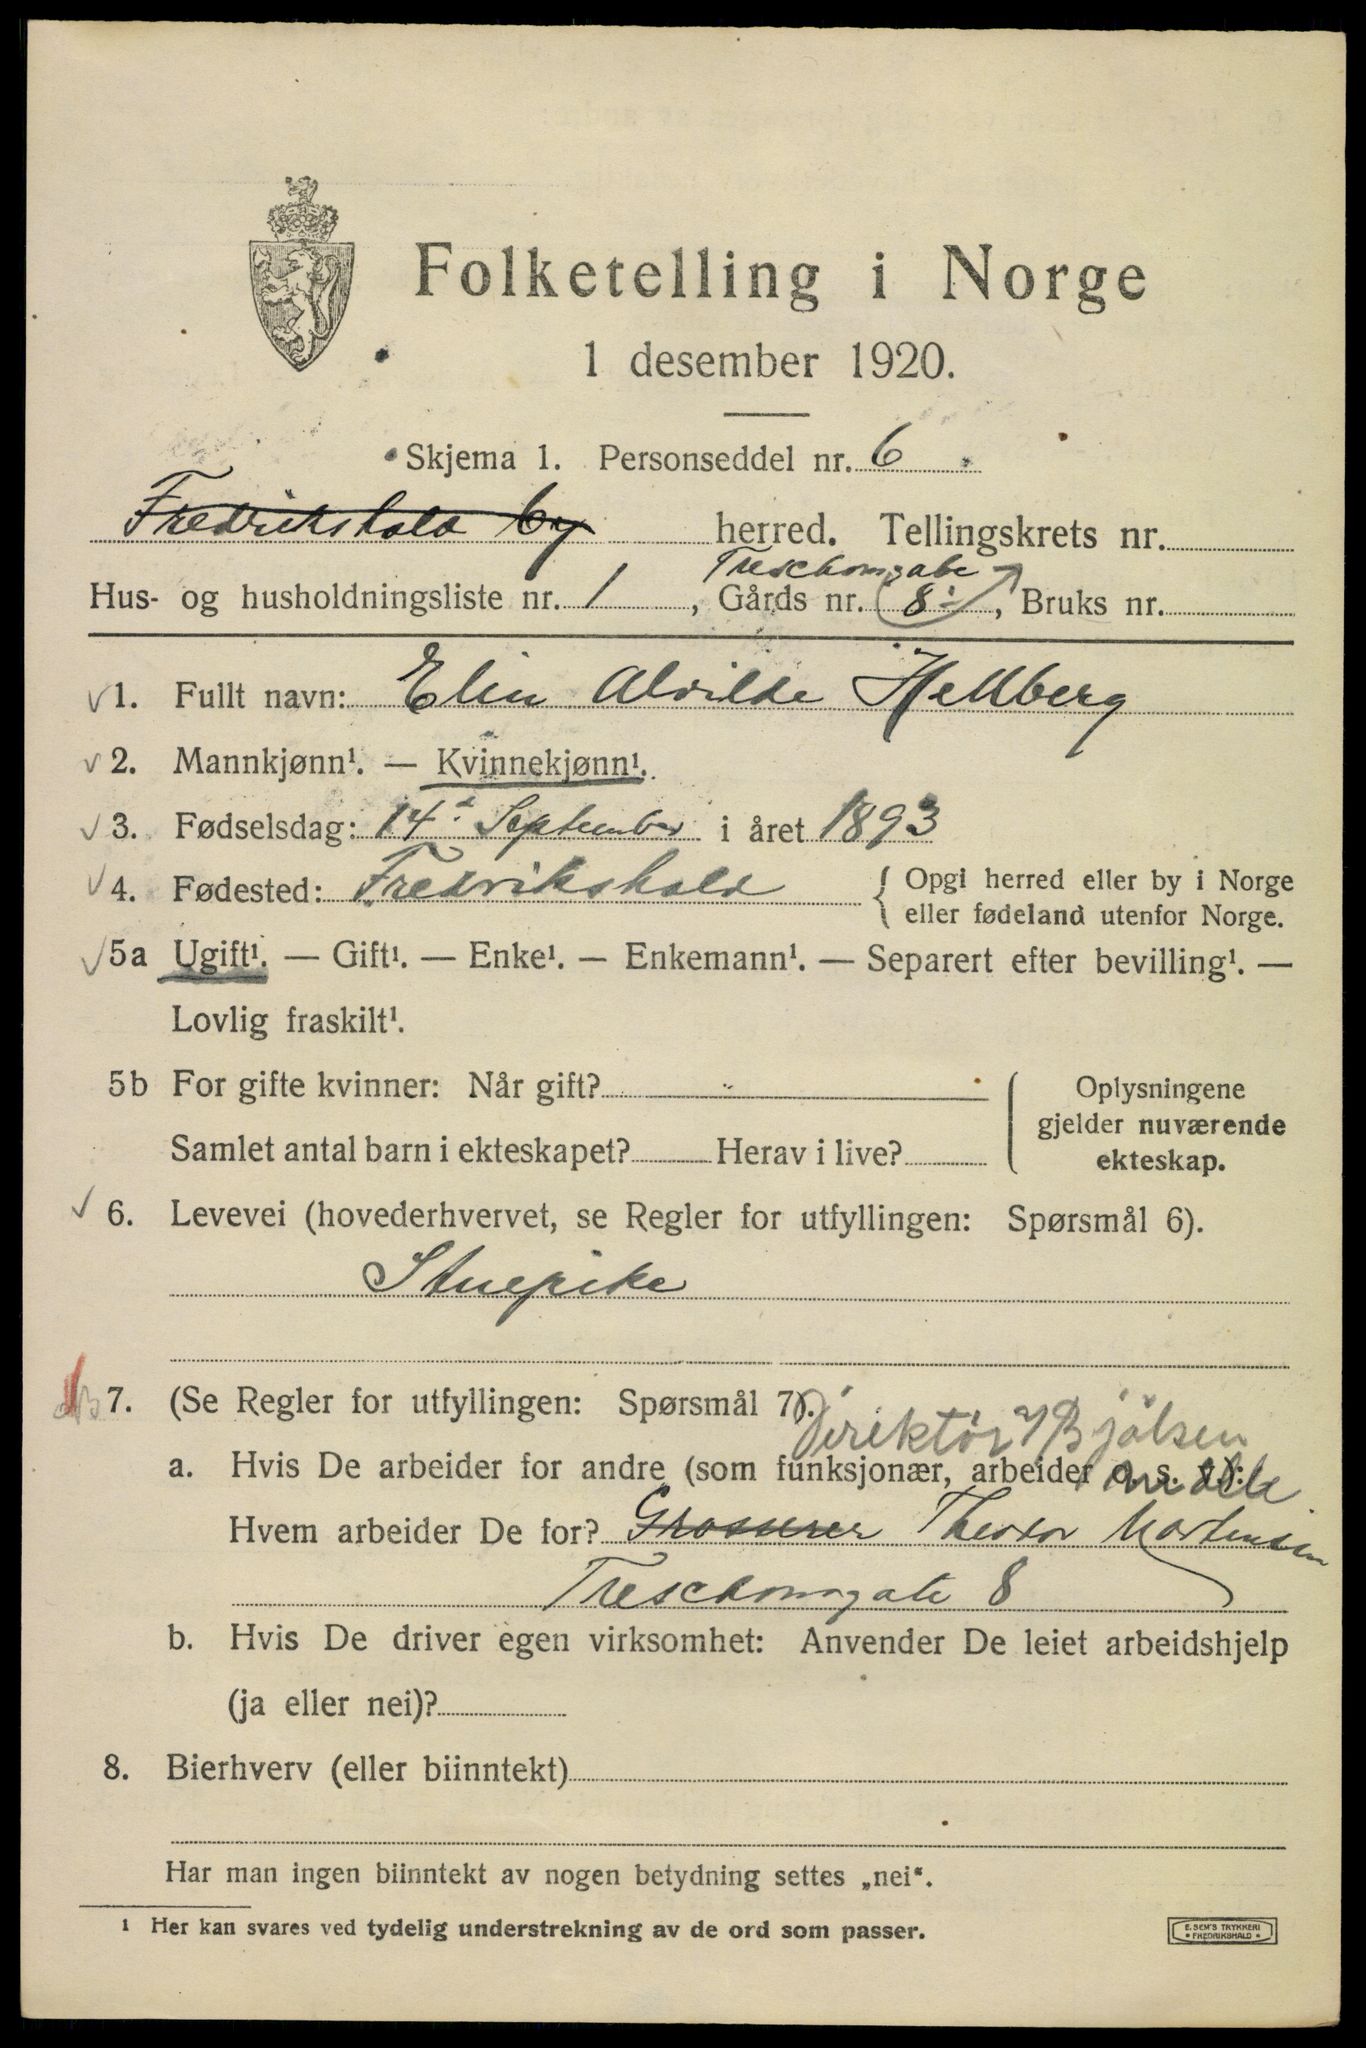 Folketelling i Norge
1 desember 1920.
Skjema 1. Personseddel nr. 6
Fredrikshald by herred. Tellingskrets nr.
Treschowsgate
Hus- og husholdningsliste nr. 1, Gårds nr. 8, Bruks nr.
1. Fullt navn: Elin Alvilde Hellberg
2. Mannkjønn¹. — Kvinnekjønn¹.
3. Fødselsdag: 14d September i året 1893
4. Fødested: Fredrikshald { Opgi herred eller by i Norge
eller fødeland utenfor Norge.
5a Ugift¹. — Gift¹. — Enke¹. — Enkemann¹. — Separert efter bevilling¹. —
Lovlig fraskilt¹.
5b For gifte kvinner: Når gift?
Samlet antal barn i ekteskapet? Herav i live?
Oplysningene
gjelder nuværende
ekteskap.
6. Levevei (hovederhvervet, se Regler for utfyllingen: Spørsmål 6).
Stuepike
7. (Se Regler for utfyllingen: Spørsmål 7).
Direktör v/ Bjölsen
a. Hvis De arbeider for andre (som funksjonær, arbeider o. s. v.):
mölle
Hvem arbeider De for? Grosserer Theodor Mortensen
Treschowsgate 8
b. Hvis De driver egen virksomhet: Anvender De leiet arbeidshjelp
(ja eller nei)?
8. Bierhverv (eller biinntekt)
Har man ingen biinntekt av nogen betydning settes „nei“.
¹ Her kan svares ved tydelig understrekning av de ord som passer.
E. SEM'S TRYKKERI
* FREDRIKSHALD *